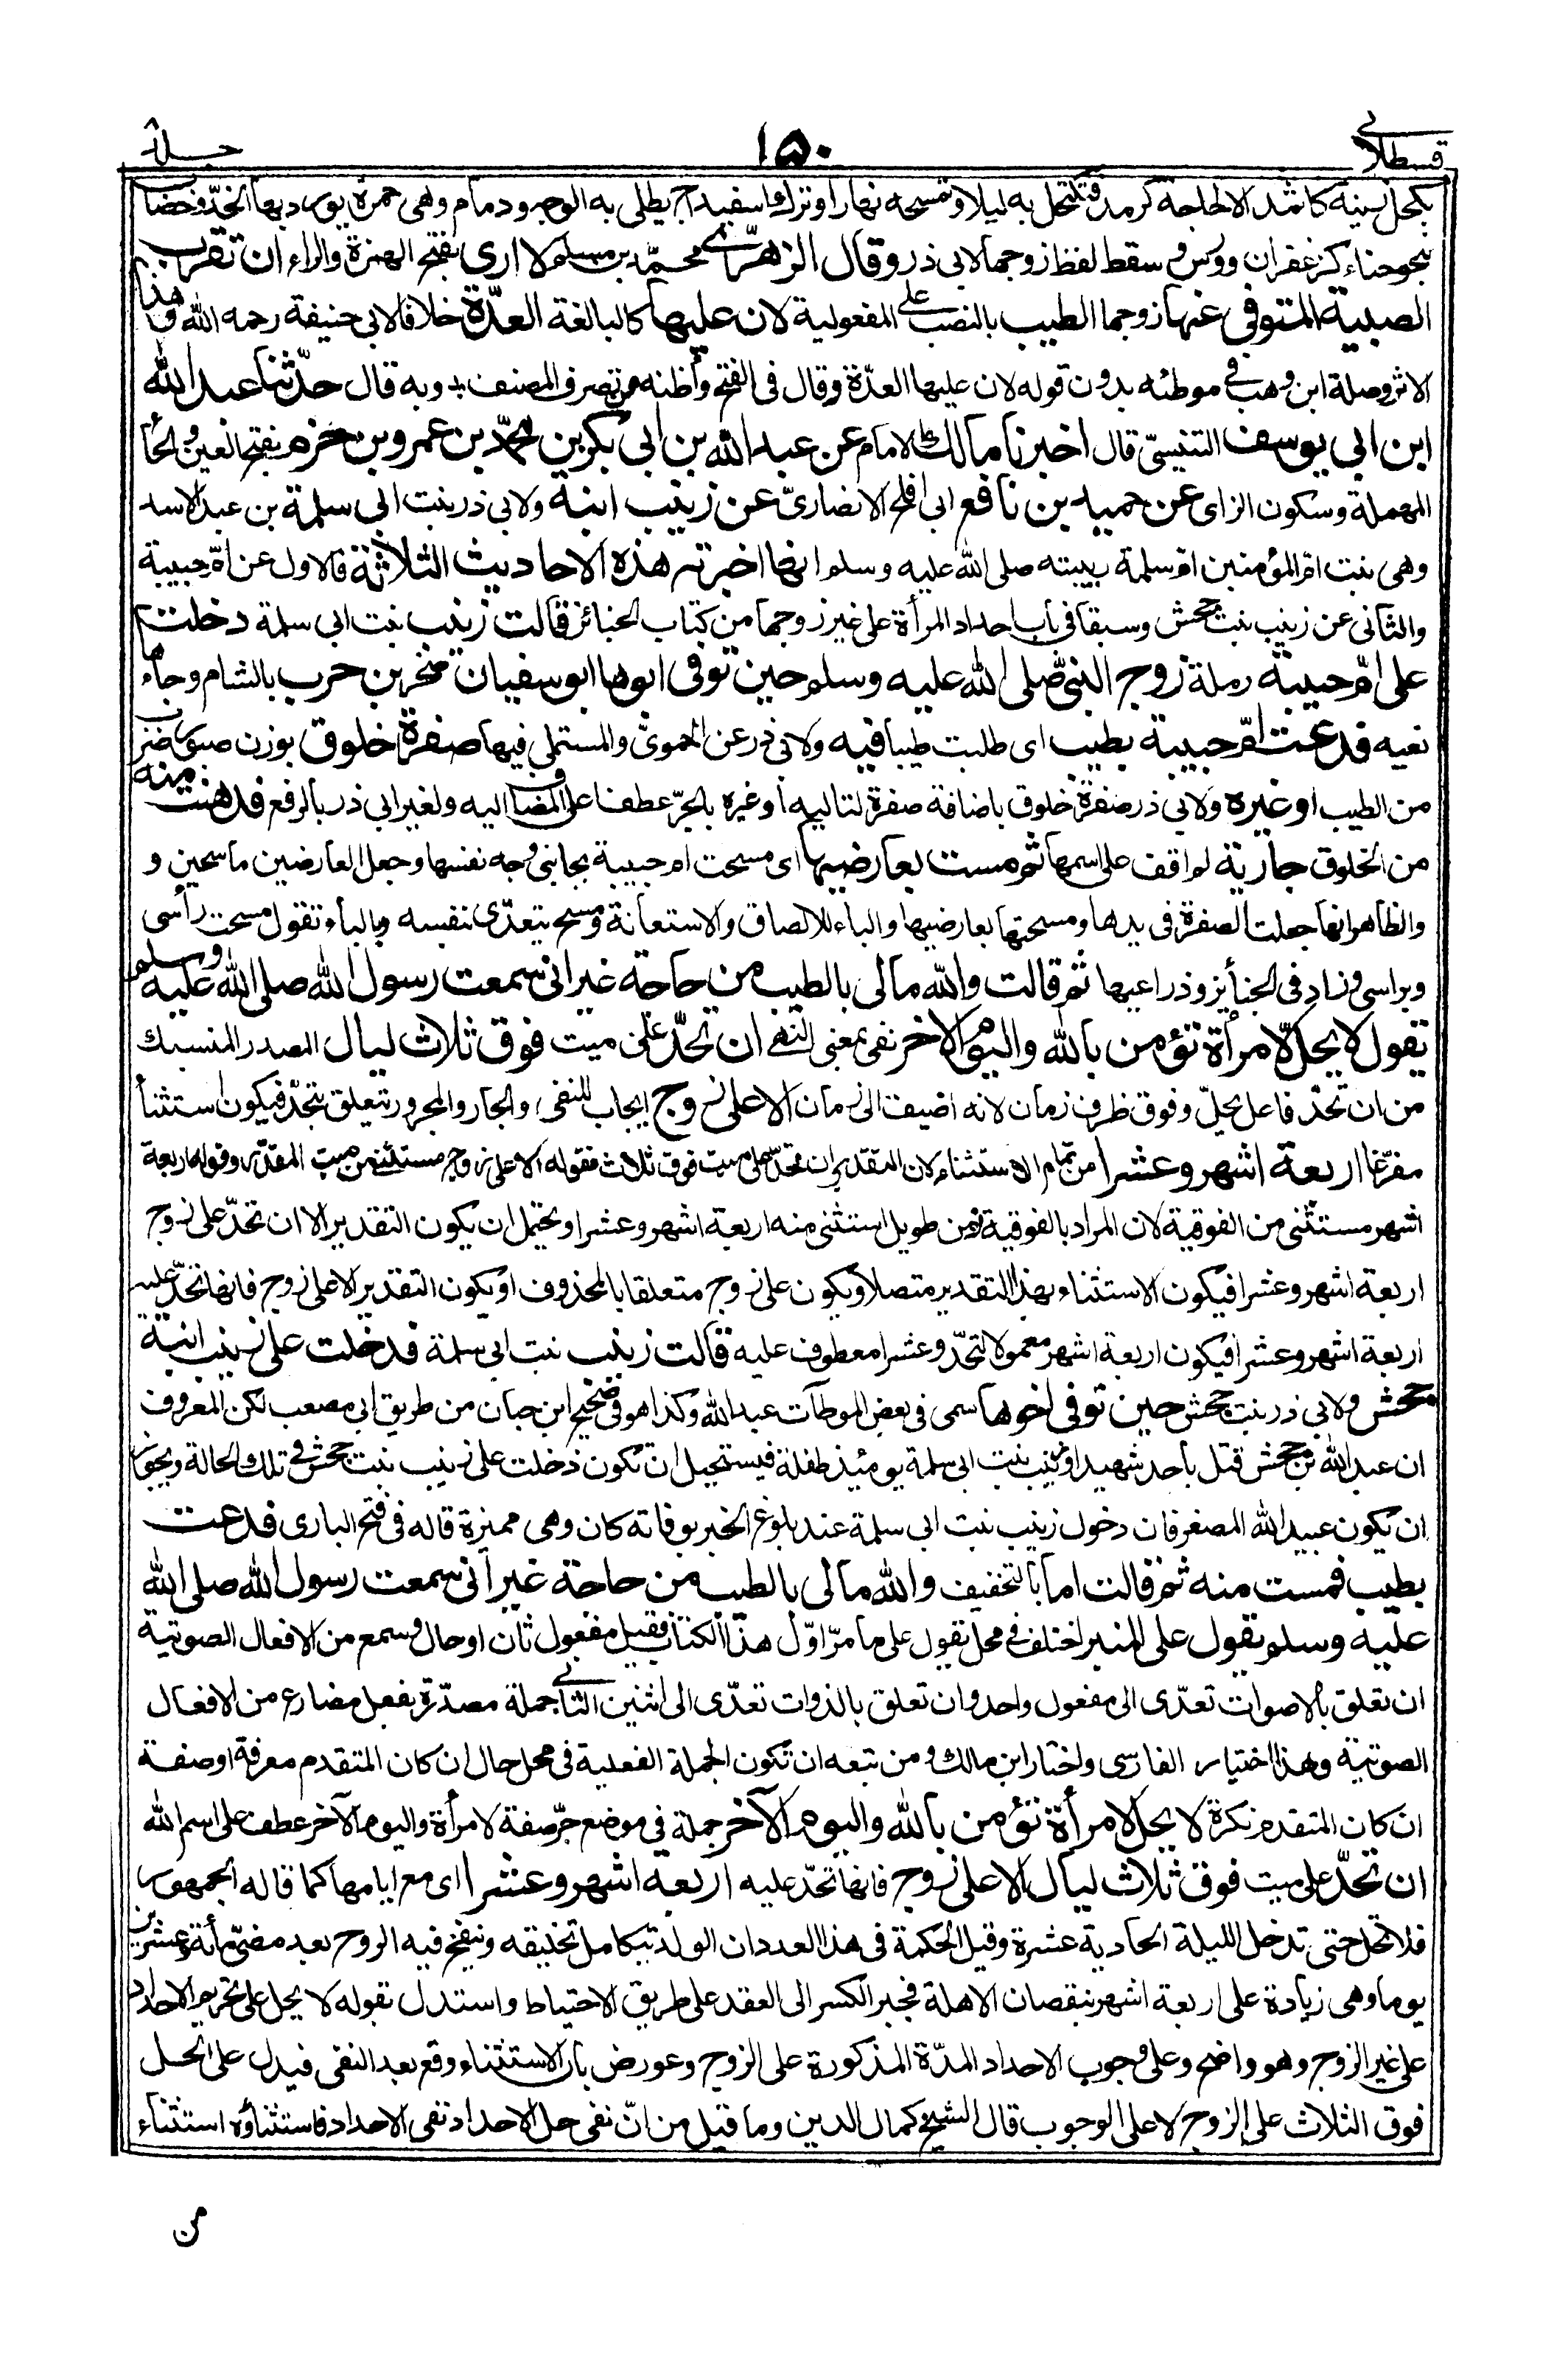 قسطلاني
١٥٠
جلد ٨
بكحل زينة كاثمد الا لحاجة كرمد فتكتحل به ليلا وتمسحه نهارا وترك اسفيداج يطلى به الوجه ودمام وهي حمرة يورد بها الخد وخضاب
بنحو حناء كزعفران وورس و سقط لفظ زوجها لابي ذر وقال الزهري محمد بن مسلم لا ارى بفتح الهمزة والراء ان تقرب
الصبية المتوفى عنها زوجها الطيب بالنصب على المفعولية لان عليها كالبالغة العدّة خلافا لابي حنيفة رحمه الله وهذا
الاثر وصله ابن وهب في موطئه بدون قوله لان عليها العدّة وقال في الفتح وأظنه من تصرف المصنف وبه قال حدّثنا عبد الله
ابن ابي يوسف التنيسيّ قال اخبرنا مالك الامام عن عبد الله بن ابي بكر بن محمّد بن عمرو بن حزم بفتح العين والحاء
المهملة وسكون الزاى عن حميد بن نافع ابى افلح الانصاريّ عن زينب ابنة ولابي ذر بنت ابي سلمة بن عبد الاسد
وهي بنت امّ المؤمنين امّ سلمة ربيبته صلى الله عليه وسلم انها اخبرته هذه الاحاديث الثلاثة فالاول عن امّ حبيبة
والثاني عن زينب بنت جحش وسبقا في باب احداد المرأة على غير زوجها من كتاب الجنائز قالت زينب بنت ابي سلمة دخلت
على امّ حبيبة رملة زوج النبيّ صلى الله عليه وسلم حين توفى ابوها ابو سفيان صخر بن حرب بالشام وجاءها
نعيه فدعت امّ حبيبة بطيب اى طلبت طيبا فيه ولابي ذر عن الحمويّ والمستملي فيها صفرة خلوق بوزن صبور ضرب
من الطيب او غيره ولابي ذر صفرة خلوق باضافة صفرة لتاليه أو غيره بالجرّ عطفا على المضاف اليه ولغير ابي ذر بالرفع فدهنت منه
من الخلوق جارية لم اقف على اسمها ثم مست بعارضيها اى مسحت ام حبيبة بجانبي وجه نفسها وجعل العارضين ماسحين و
والظاهر انها جعلت الصفرة في يدها ومسحتها بعارضيها والباء للالصاق والاستعانة ومسح يتعدّى بنفسه وبالباء تقول مسحت رأسي
وبراسي وزاد في الجنائز وذراعيها ثم قالت والله مالى بالطيب من حاجة غير اني سمعت رسول الله صلى الله عليه وسلم
يقول لا يحلّ لامرأة تؤمن بالله واليوم الاخر نفي بمعنى النهى ان تحدّ على ميت فوق ثلاث ليال المصدر المنسبك
من ان تحدّ فاعل يحلّ وفوق ظرف زمان لانه اضيف الى زمان الا على زوج ايجاب للنفى والجار والمجرور يتعلق بتحدّ فيكون استثناء
مفرّغا اربعة اشهر وعشرا من تمام الاستثناء لان التقدير ان تحدّ على ميت فوق ثلاث فقوله الا على زوج مستثنى من ميت المقدّر وقوله اربعة
اشهر مستثنى من الفوقية لان المراد بالفوقية زمن طويل استثنى منه اربعة اشهر وعشرا ويحتمل ان يكون التقدير الا ان تحدّ على زوج
اربعة اشهر وعشرا فيكون الاستثناء بهذا التقدير متصلا ويكون على زوج متعلقا بالمحذوف او يكون التقدير الا على زوج فانها تحدّ عليه
اربعة اشهر وعشرا فيكون اربعة اشهر معمولا لتحدّ وعشرا معطوف عليه قالت زينب بنت ابي سلمة فدخلت على زينب ابنة
جحش ولابي ذر بنت جحش حين توفى اخوها سمى في بعض الموطآت عبد الله وكذا هو في صحيح ابن حبان من طريق ابي مصعب لكن المعروف
ان عبد الله بن جحش قتل بأحد شهيدا وزينب بنت ابي سلمة يومئذ طفلة فيستحيل ان تكون دخلت على زينب بنت جحش في تلك الحالة ويجوز
ان يكون عبيد الله المصغر فان دخول زينب بنت ابي سلمة عند بلوغ الخبر بوفاته كان وهي مميزة قاله في فتح البارى فدعت
بطيب فمست منه ثم قالت اما بالتخفيف والله مالى بالطيب من حاجة غير أني سمعت رسول الله صلى الله
عليه وسلم يقول على المنبر اختلف في محل يقول على ما مرّ اوّل هذا الكتاب فقيل مفعول ثان او حال وسمع من الافعال الصوتية
ان تعلق بالاصوات تعدّى الى مفعول واحد وان تعلق بالذوات تعدّى الى اثنين الثاني جملة مصدّرة بفعل مضارع من الافعال
الصوتية وهذا اختيار الفارسي واختار ابن مالك ومن تبعه ان تكون الجملة الفعلية في محل حال ان كان المتقدم معرفة او صفة
ان كان المتقدم نكرة لا يحل لامرأة تؤمن بالله واليوم الآخر جملة في موضع جرّ صفة لامرأة واليوم الآخر عطف على اسم الله
ان تحدّ على ميت فوق ثلاث ليال الا على زوج فانها تحدّ عليه اربعة اشهر وعشرا اى مع ايامها كما قاله الجمهور
فلا تحل حتى تدخل الليلة الحادية عشرة وقيل الحكمة في هذا العدد ان الولد يتكامل تخليقه وينفخ فيه الروح بعد مضيّ مأئة وعشرين
يوما وهي زيادة على اربعة اشهر بنقصان الاهلة فجبر الكسر الى العقد على طريق الاحتياط واستدل بقوله لا يحل على تحريم الاحداد
على غير الزوج وهو واضح وعلى وجوب الاحداد المدّة المذكورة على الزوج وعورض بان الاستثناء وقع بعد النفى فيدل على الحل
فوق الثلاث على الزوج لا على الوجوب قال الشيخ كمال الدين وما قيل من انّ نفى حل الاحداد نفى الاحداد فاستثناؤه استثناء
من